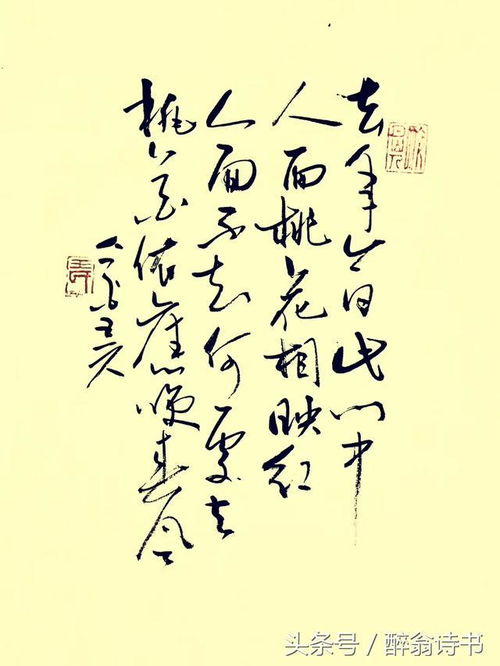 去年今日此门中
人面桃花相映红
人面不知何處去
桃花依舊咲春风
头条号 / 醉翁诗书